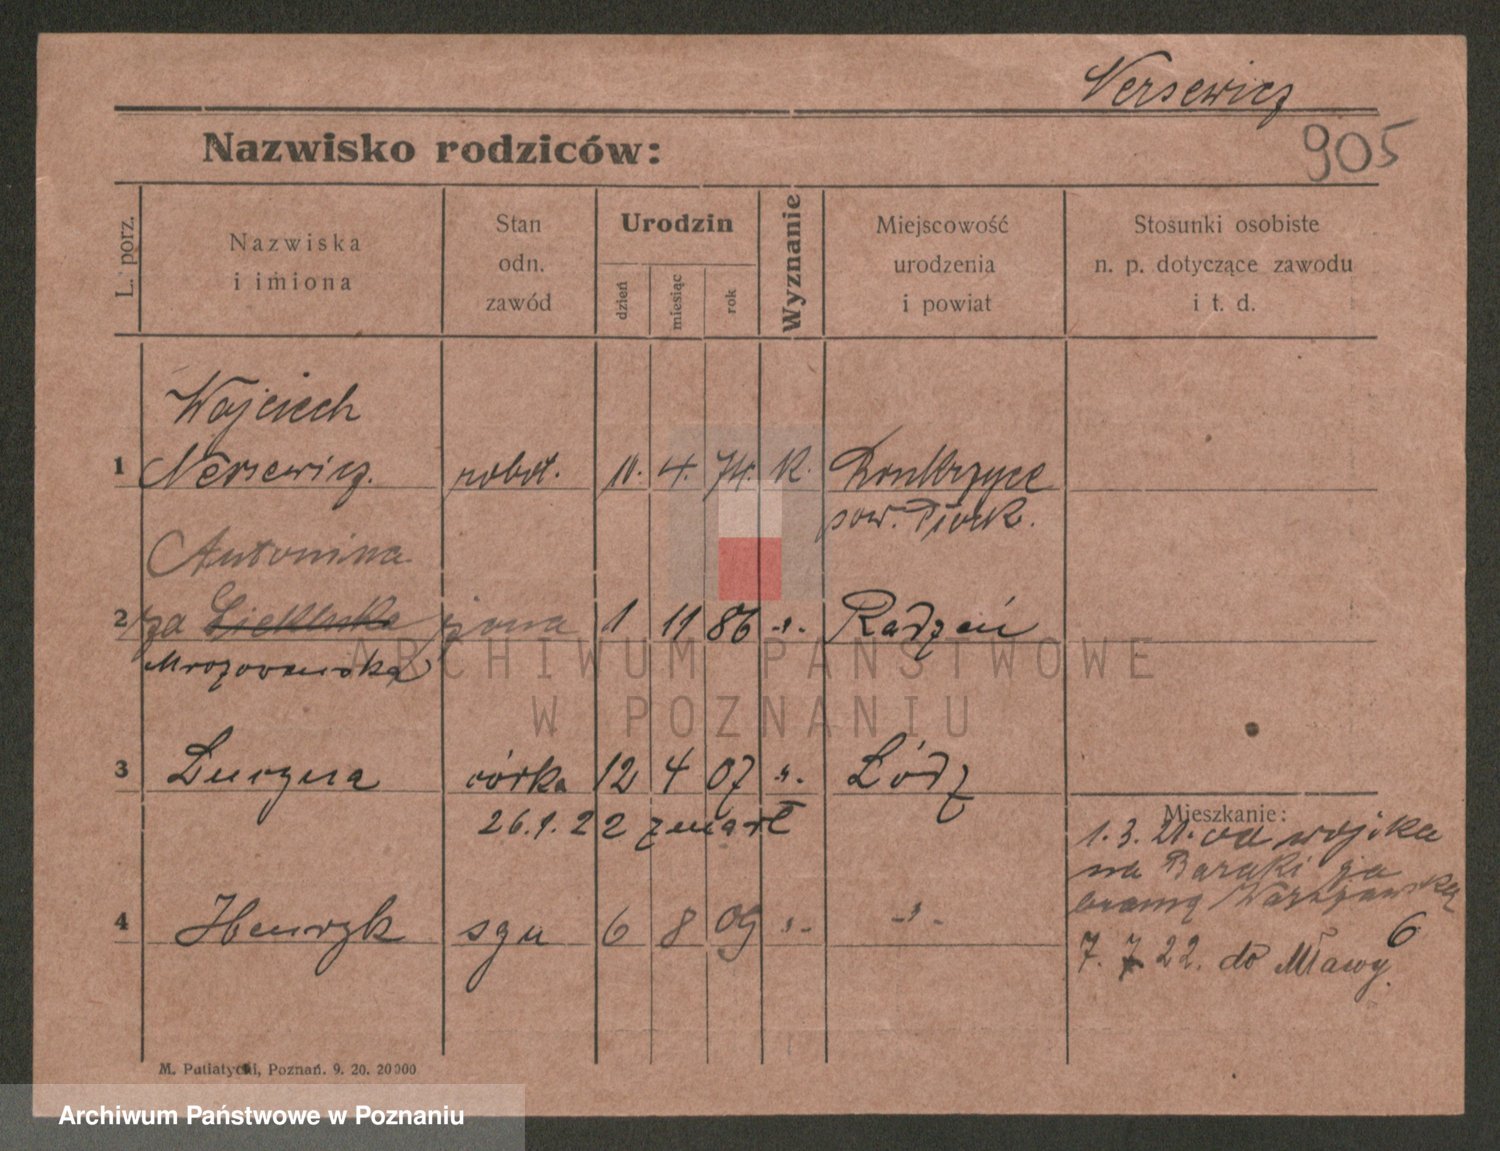 Nersewicz
905
Nazwisko rodziców:
L. porz.
Nazwiska
i imiona
Stan
odn.
zawód
Urodzin
dzień
miesiąc
rok
Wyznanie
Miejscowość
urodzenia
i powiat
Stosunki osobiste
n. p. dotyczące zawodu
i t. d.
Wojciech
1 Nersewicz. robot. 11. 4. 74. K.
pow. Piotrk.
Antonina
2 za żona 1 11 86 -„- Radzeń
Mrozowanska
3 Lucyna córka 12 4 07 -„- Łódź
26.1.22 zmarł
Mieszkanie:
1.3.21. od wojska
na Baraki za
bramą Warszawską
4 Henryk syn 6 8 09 -„- -„-
6
7. 7 22. do Mławy.
M. Putiatycki, Poznań. 9. 20. 20000
ARCHIWUM PAŃSTWOWE
W POZNANIU
Archiwum Państwowe w Poznaniu